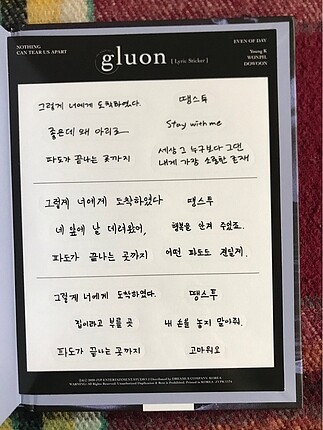 NOTHING
CAN TEAR US APART
gluon [ Lyric Sticker ]
EVEN OF DAY
Young K
WONPIL
DOWOON
그렇게 너에게 도착하였다.
땡스투
좋은데 왜 아리고
Stay with me
파도가 끝나는 곳까지
세상 그 누구보다 그댄
내게 가장 소중한 존재
그렇게 너에게 도착하였다
땡스투
네 앞에 날 데려왔어,
행복을 안겨 주었죠.
파도가 끝나는 곳까지
어떤 파도도 견딜게.
그렇게 너에게 도착하였다.
땡스투
집이라고 부를 곳
내 손을 놓지 말아줘.
파도가 끝나는 곳까지
고마워요